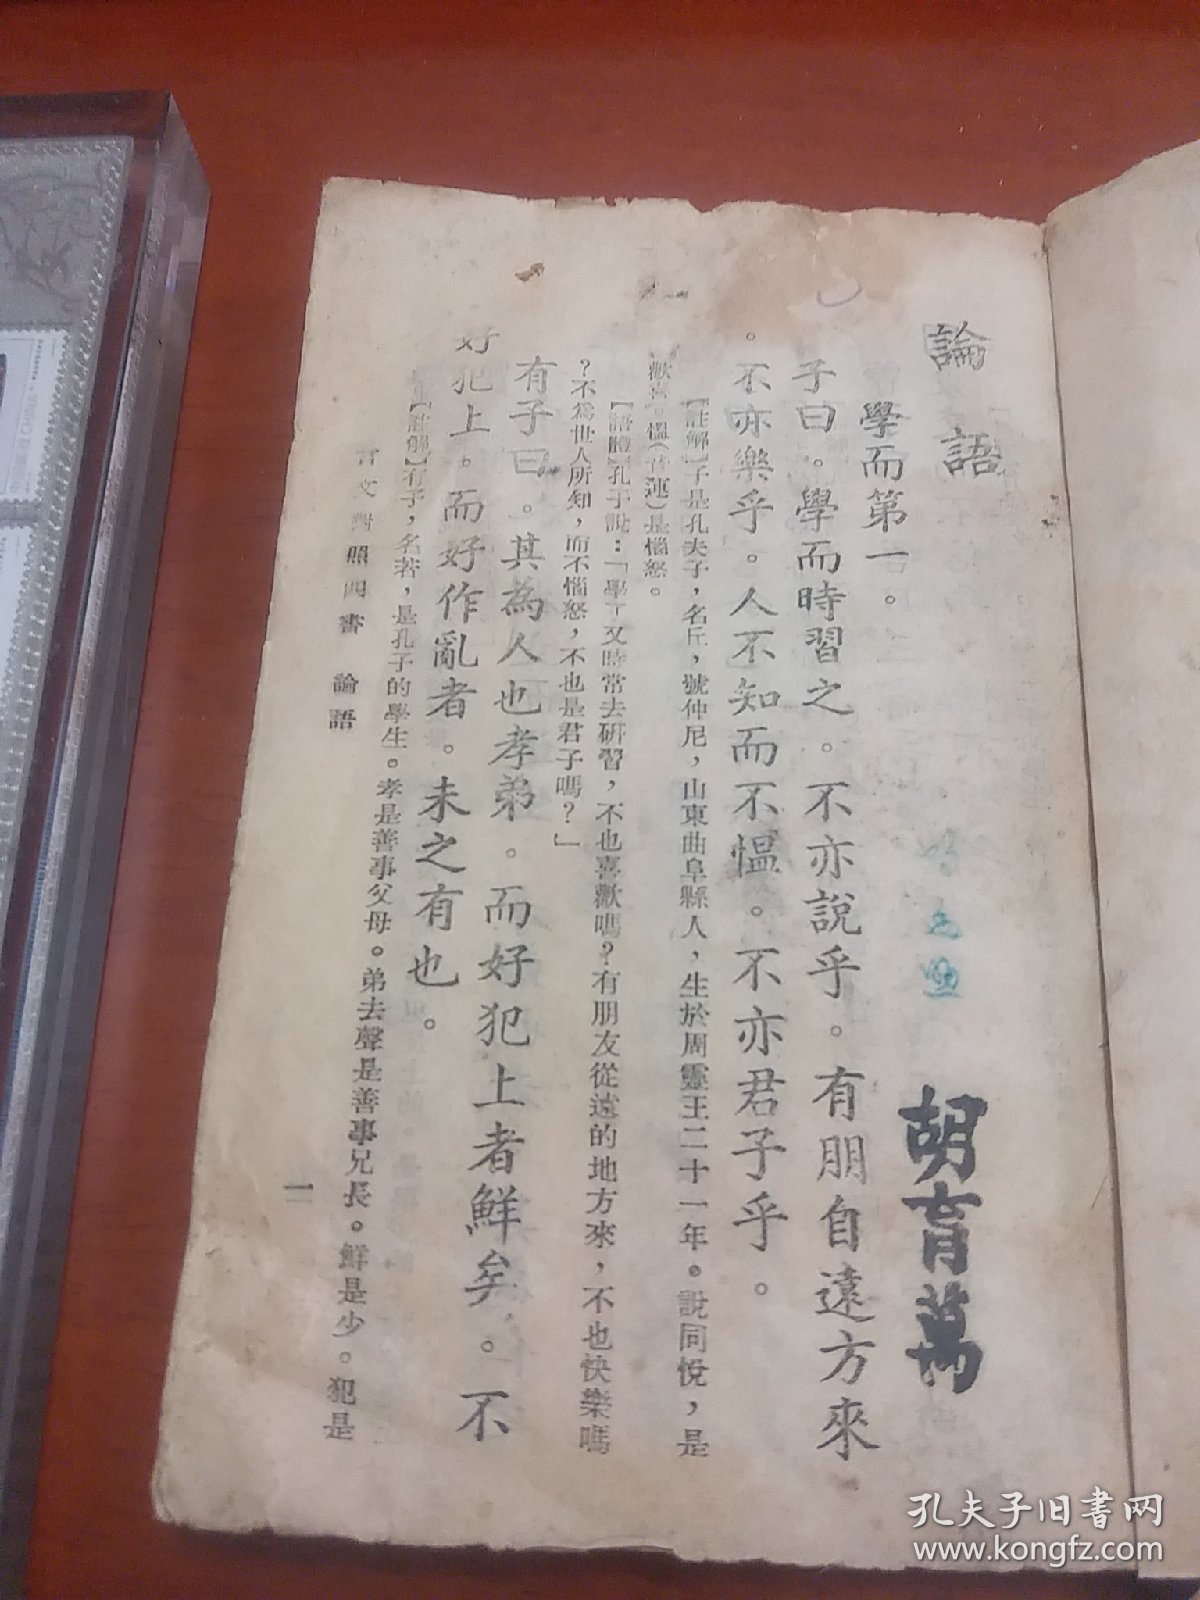 論語
胡育萬
學而第一。
子曰。學而時習之。不亦說乎。有朋自遠方來
。不亦樂乎。人不知而不慍。不亦君子乎。
【註解】子是孔夫子，名丘，號仲尼，山東曲阜縣人，生於周靈王二十一年。說同悅，是
歡喜。慍(音運)是惱怒。
【語體】孔子說：「學了又時常去研習，不也喜歡嗎？有朋友從遠的地方來，不也快樂嗎
？不為世人所知，而不惱怒，不也是君子嗎？」
有子曰。其為人也孝弟。而好犯上者鮮矣。不
好犯上。而好作亂者。未之有也。
【註解】有子，名若，是孔子的學生。孝是善事父母。弟去聲是善事兄長。鮮是少。犯是
言文對照四書 論語
一
孔夫子旧书网
www.kongfz.com